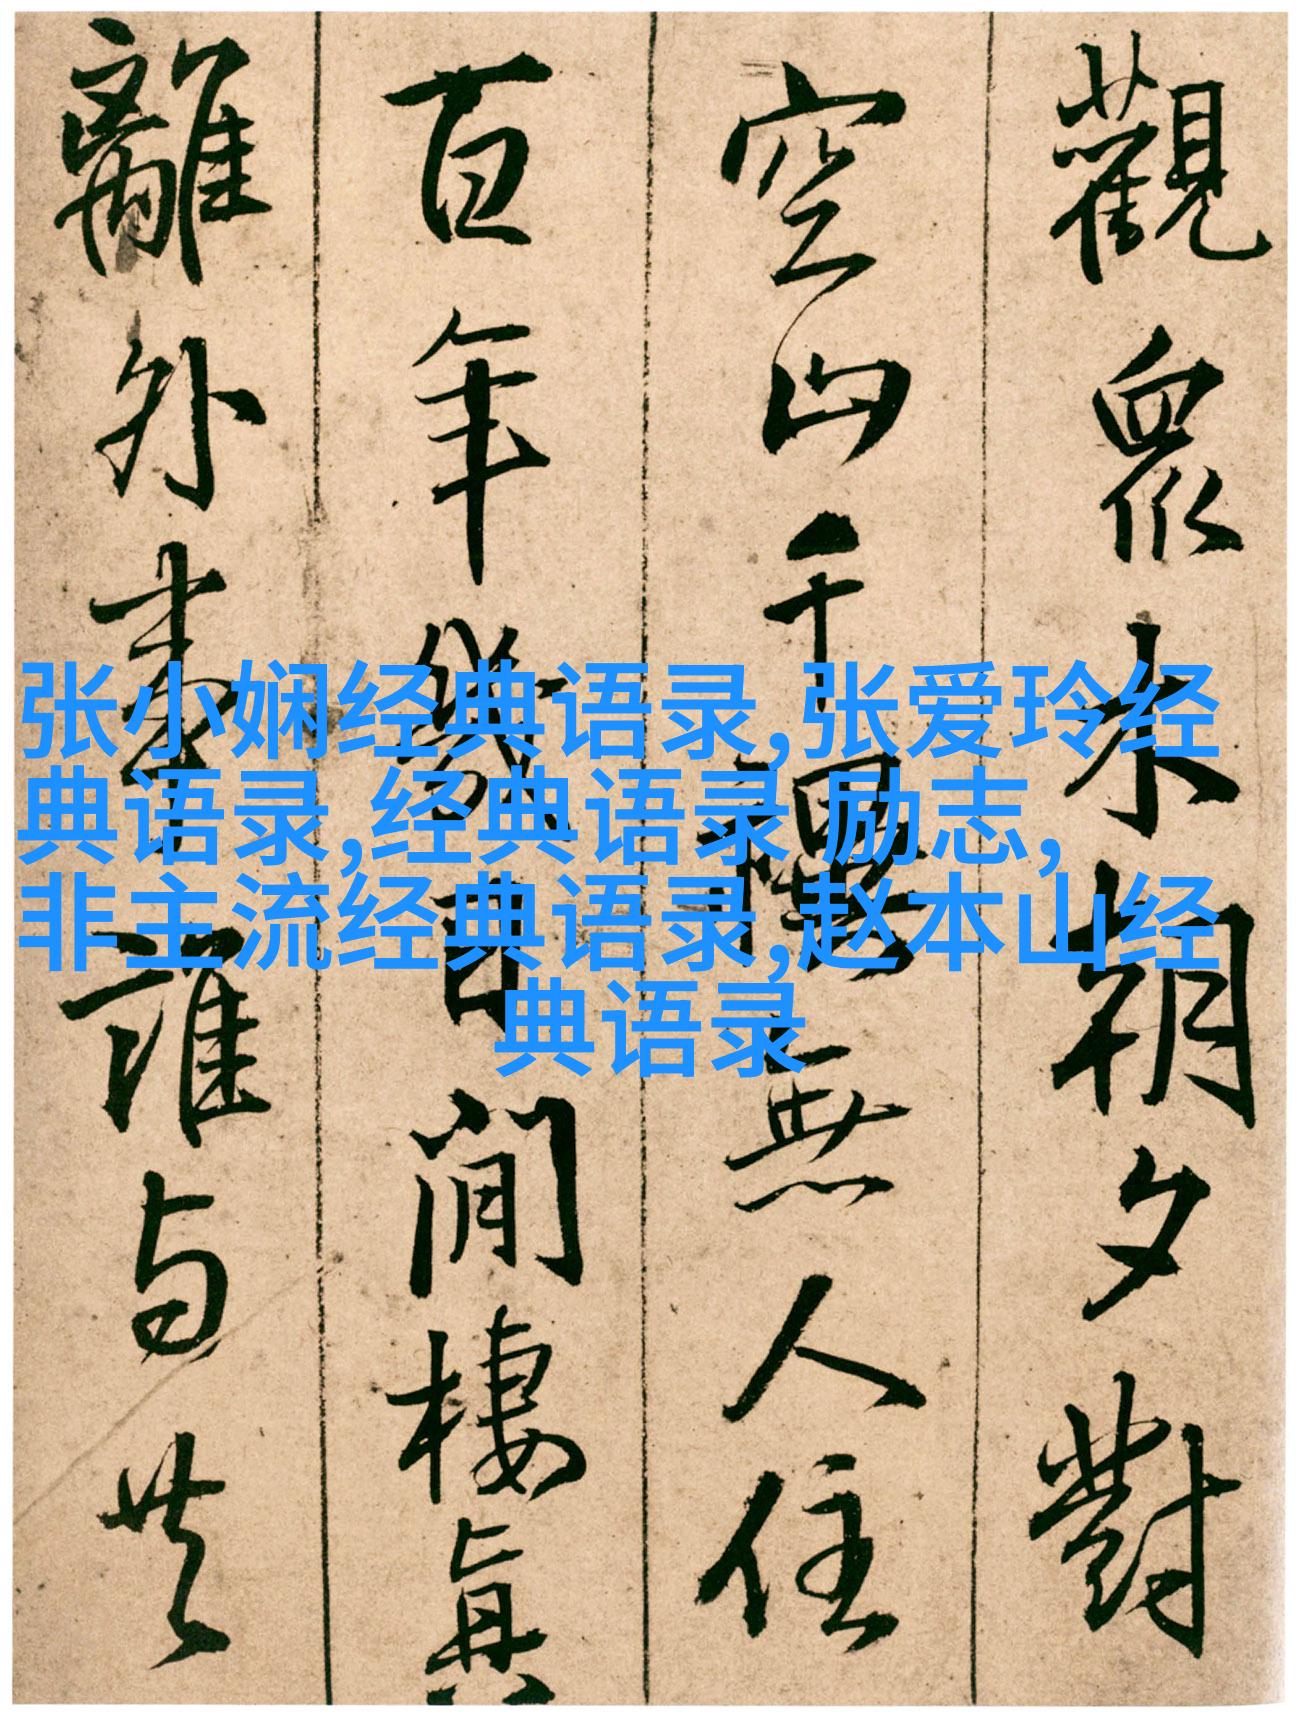 觀衆木朝夕對
空山千無人住
百年幾閒棲真
離外与共
张小娴经典语录,张爱玲经
典语录,经典语录 励志,
非主流经典语录,赵本山经
典语录